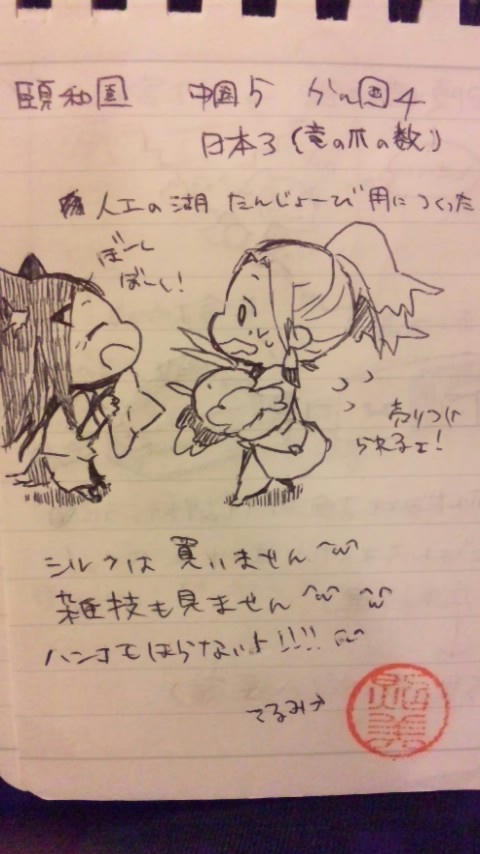 頤和園　中国5　かん国4
日本3(竜の爪の数)
人工の湖 たんじょーび用につくった
ぼーし
ぼーし!
売りつけ
られるェ!
シルクは買いません^ω^
雑技も見ません^ω^ ^ω^
ハンコもほらないよ!!!! ^ω^
てるみ→